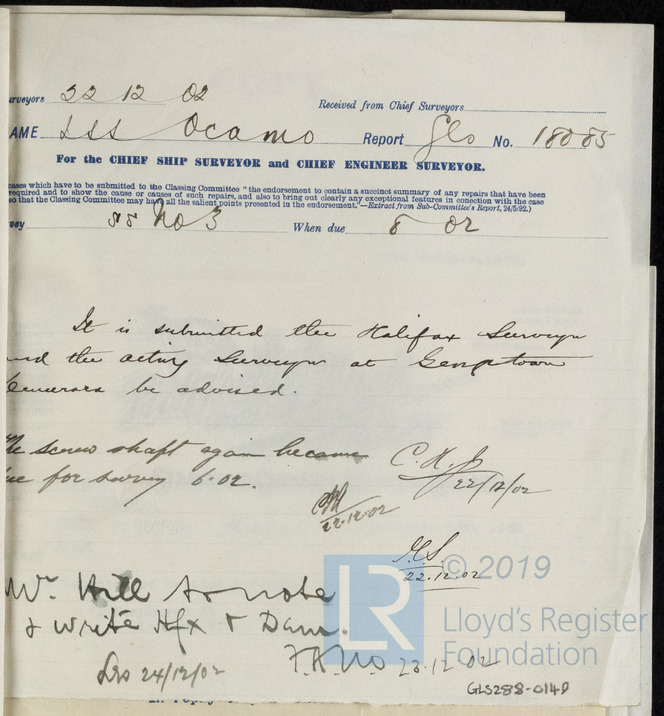 rveyors 22 12 02 Received from Chief Surveyors
AME SSS Ocamo Report Gls No. 18085
For the CHIEF SHIP SURVEYOR and CHIEF ENGINEER SURVEYOR.
cases which have to be submitted to the Classing Committee "the endorsement to contain a succinct summary of any repairs that have been
required and to show the cause or causes of such repairs, and also to bring out clearly any exceptional features in conection with the case
so that the Classing Committee may have all the salient points presented in the endorsement."—Extract from Sub-Committee's Report, 24/5/92.)
vey SS No 3 When due 8 02
It is submitted the Halifax Surveyor
nd the acting Surveyor at Georgetown
emerara be advised.
he screw shaft again became
ue for survey 6.02.
22/12/02
22.12.02
22.12.02
Mr. Hill to note
& write Hfx & Dem.
Lrs 24/12/02
23.12.02
LR
© 2019
Lloyd's Register
Foundation
GLS288-0149